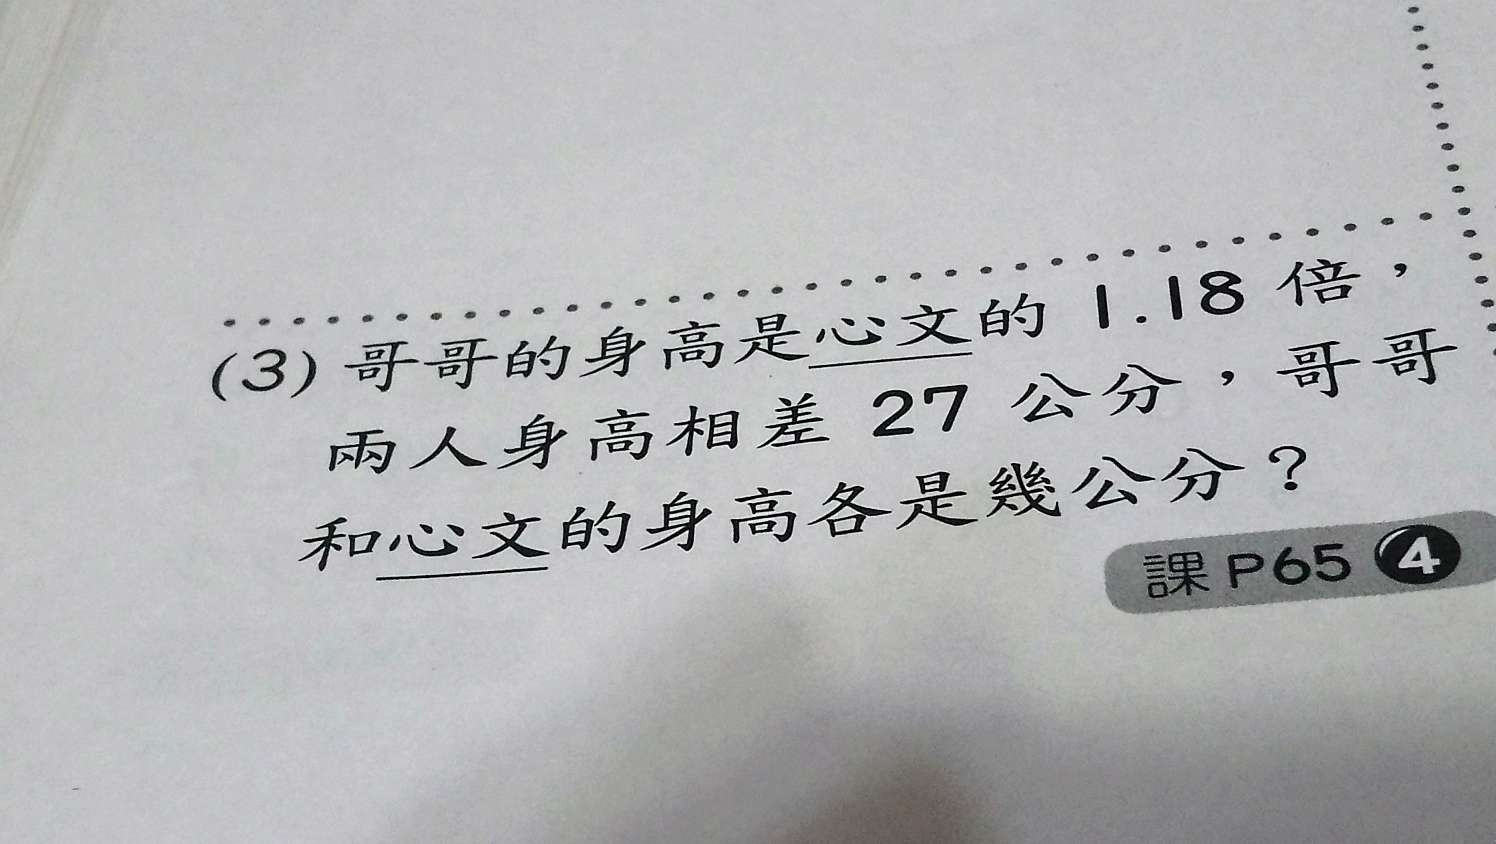 (3) 哥哥的身高是心文的 1.18 倍，
兩人身高相差 27 公分，哥哥
和心文的身高各是幾公分？
課 P65 4